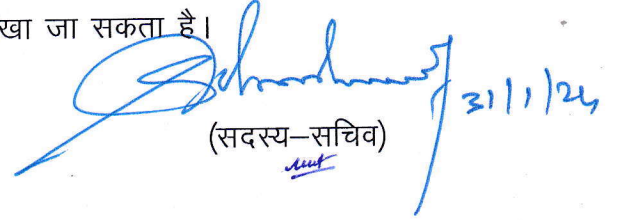 खा जा सकता है।
31/1/24
(सदस्य–सचिव)